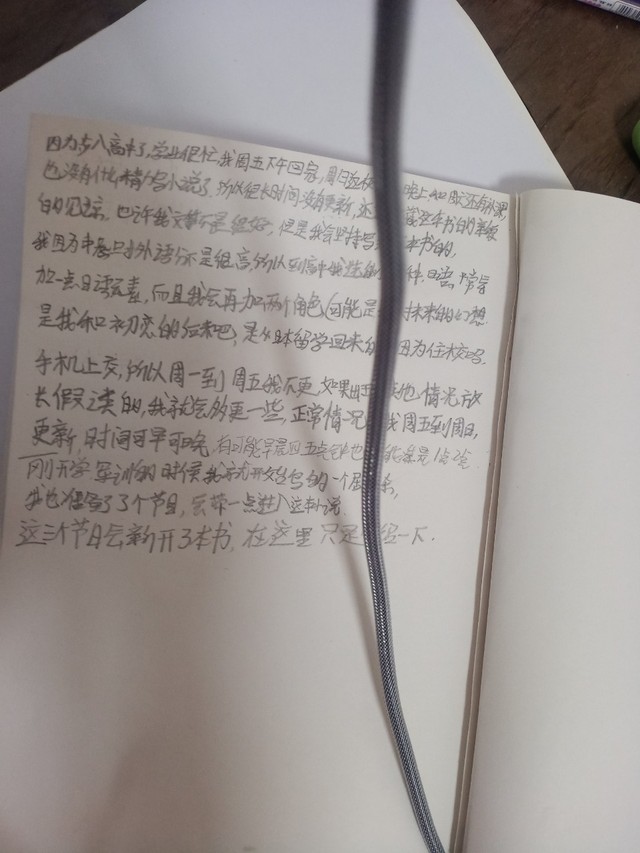 因为步入高中了,学业很忙,我周五下午回家,周日返校 晚上和 还有补课
也没有什么精力写小说了,所以很长时间没有更新,还 本书的单板
的见谅。也许我文笔不是很好,但是我会坚持写 本书的,
我因为中考 外语分不是很高,所以到高中我选的 种,日语,
加一点日语元素,而且我会再加两个角色(可能是 对未来的幻想
是我和初恋的 吧,是从日本留学回来的 因为住校吗.
手机上交,所以周一到周五我不更,如果出现 其他情况 放
长假之类的,我就会多更一些,正常情况 我周五到周日,
更新,时间可早可晚.有可能早晨四五点钟也 可能凌晨1点2点.
刚开学.军训的时候我就开始写的一个
我也准备了3个节日,会带一点进入这本小说
这三个节日会新开了本书,在这里只是 一下.